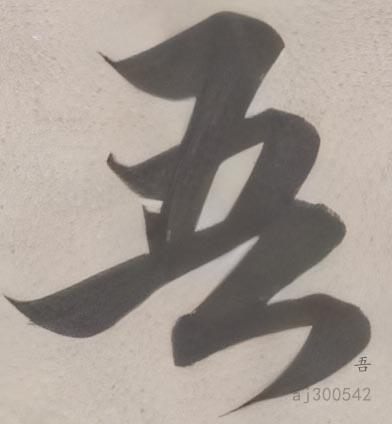 吾
吾
aj300542